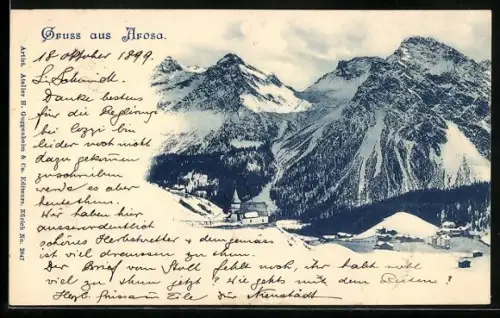 Gruss aus Arosa.
18 Oktober 1899.
L. Schmidt.
Danke bestens
für die Replique
bei Cozzi bin
leider noch nicht
dazu gekommen
zuschreiben
werde es aber
heute thun.
Wir haben hier
ausserordentlich
schönes Herbstwetter & demgemäss
ist viel draussen zu thun.
Der Brief von Stoll fehlt noch, ihr habt wohl
viel zu thun jetzt? Wie gehts mit dem
Herzl. Grüsse in Eile
Artist. Atelier H. Guggenheim & Co. Editeurs, Zürich No. 2847